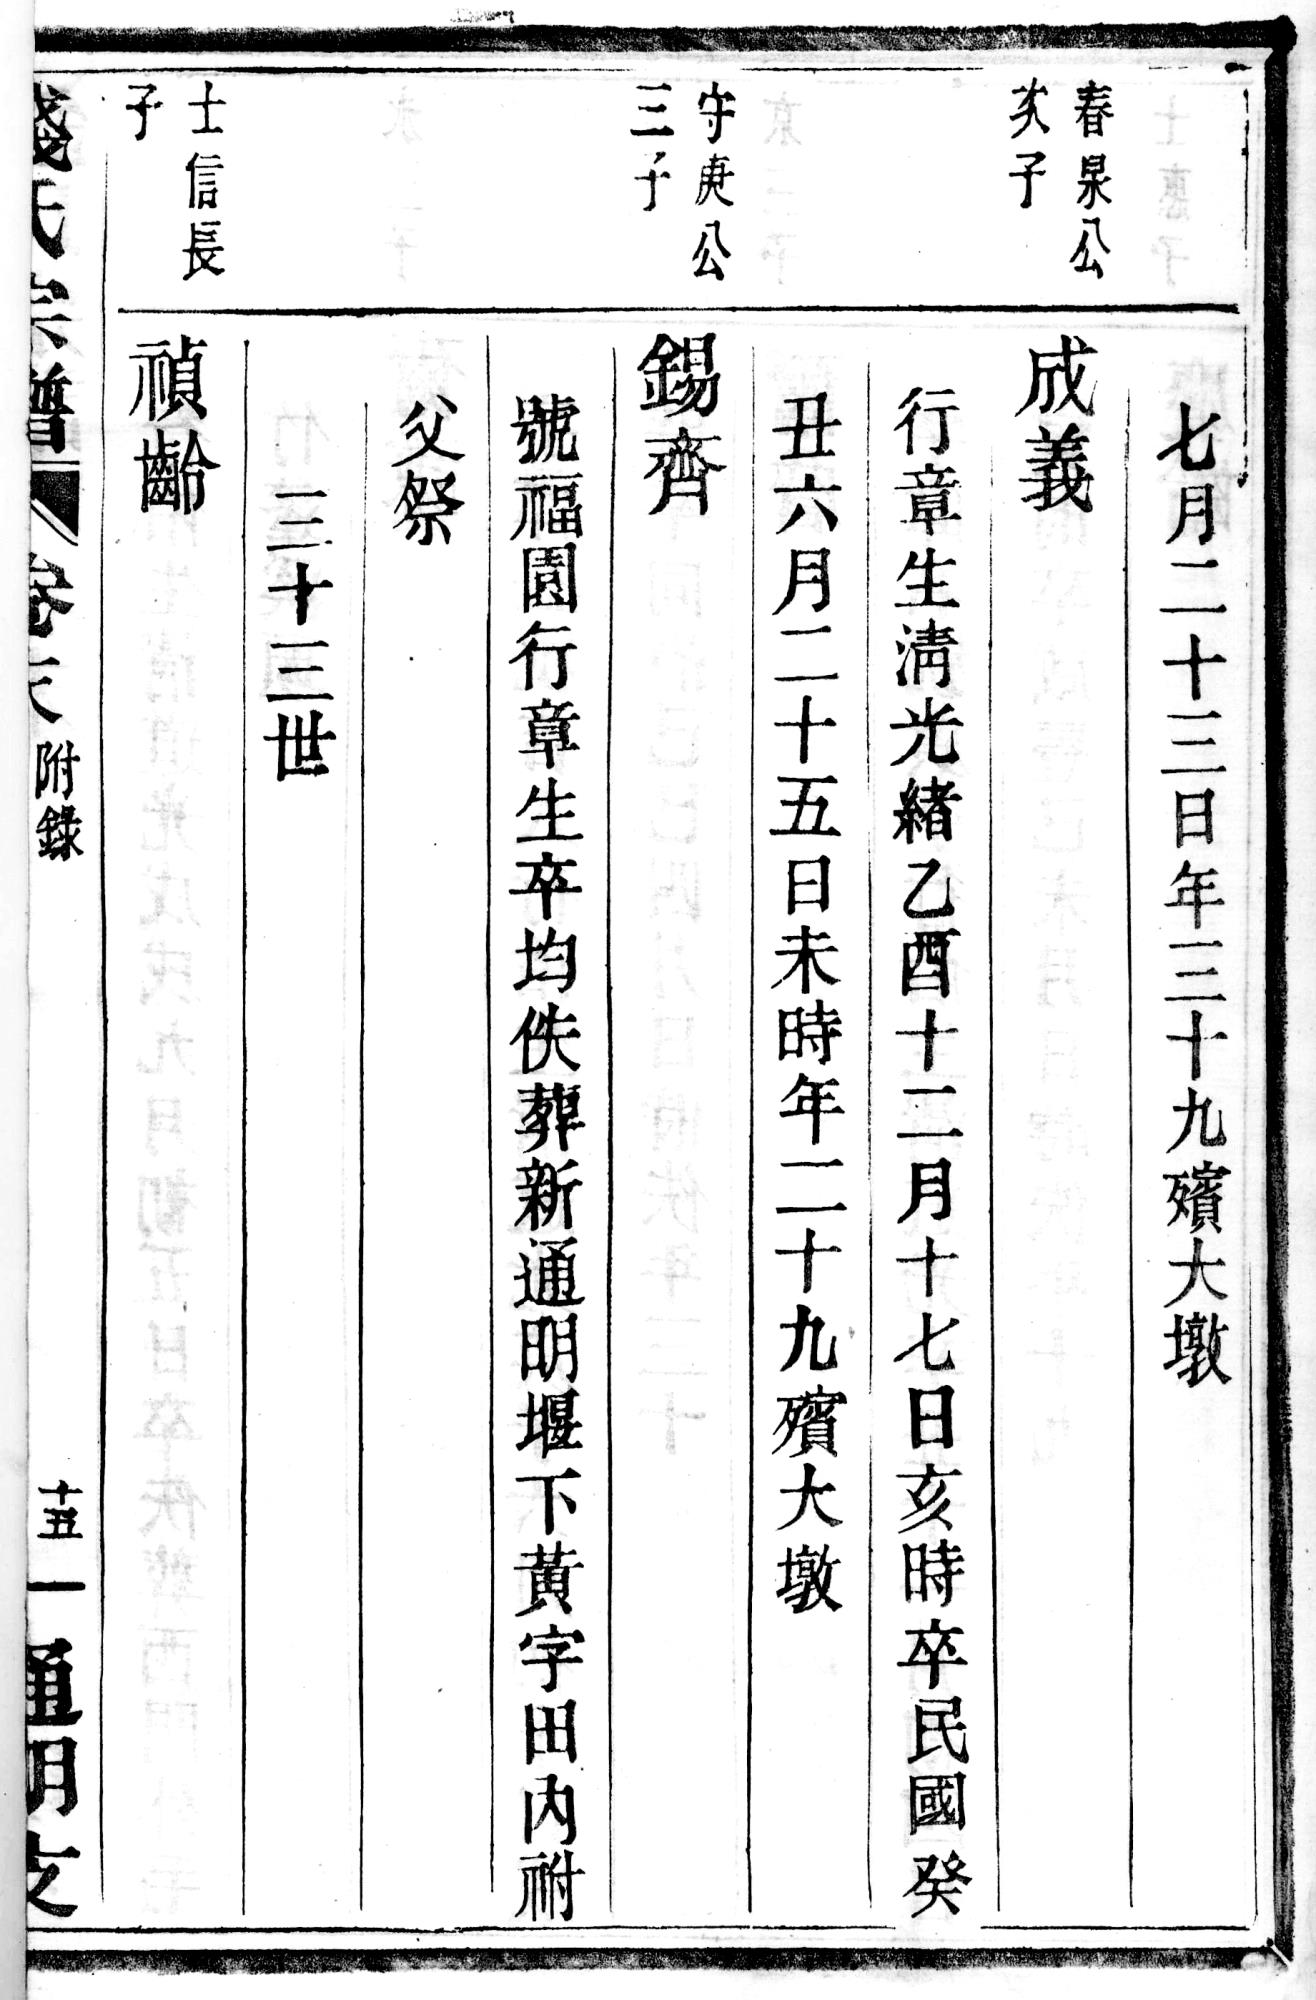 七月二十三日年三十九殯大墩
春泉公
次子
成義
行章生清光緒乙酉十二月十七日亥時卒民國癸
丑六月二十五日未時年二十九殯大墩
守庚公
三子
錫齊
號福園行章生卒均佚葬新通明堰下黃字田內祔
父祭
三十三世
士信長
子
禎齡
錢氏宗譜 卷末 附錄 十五 通明支